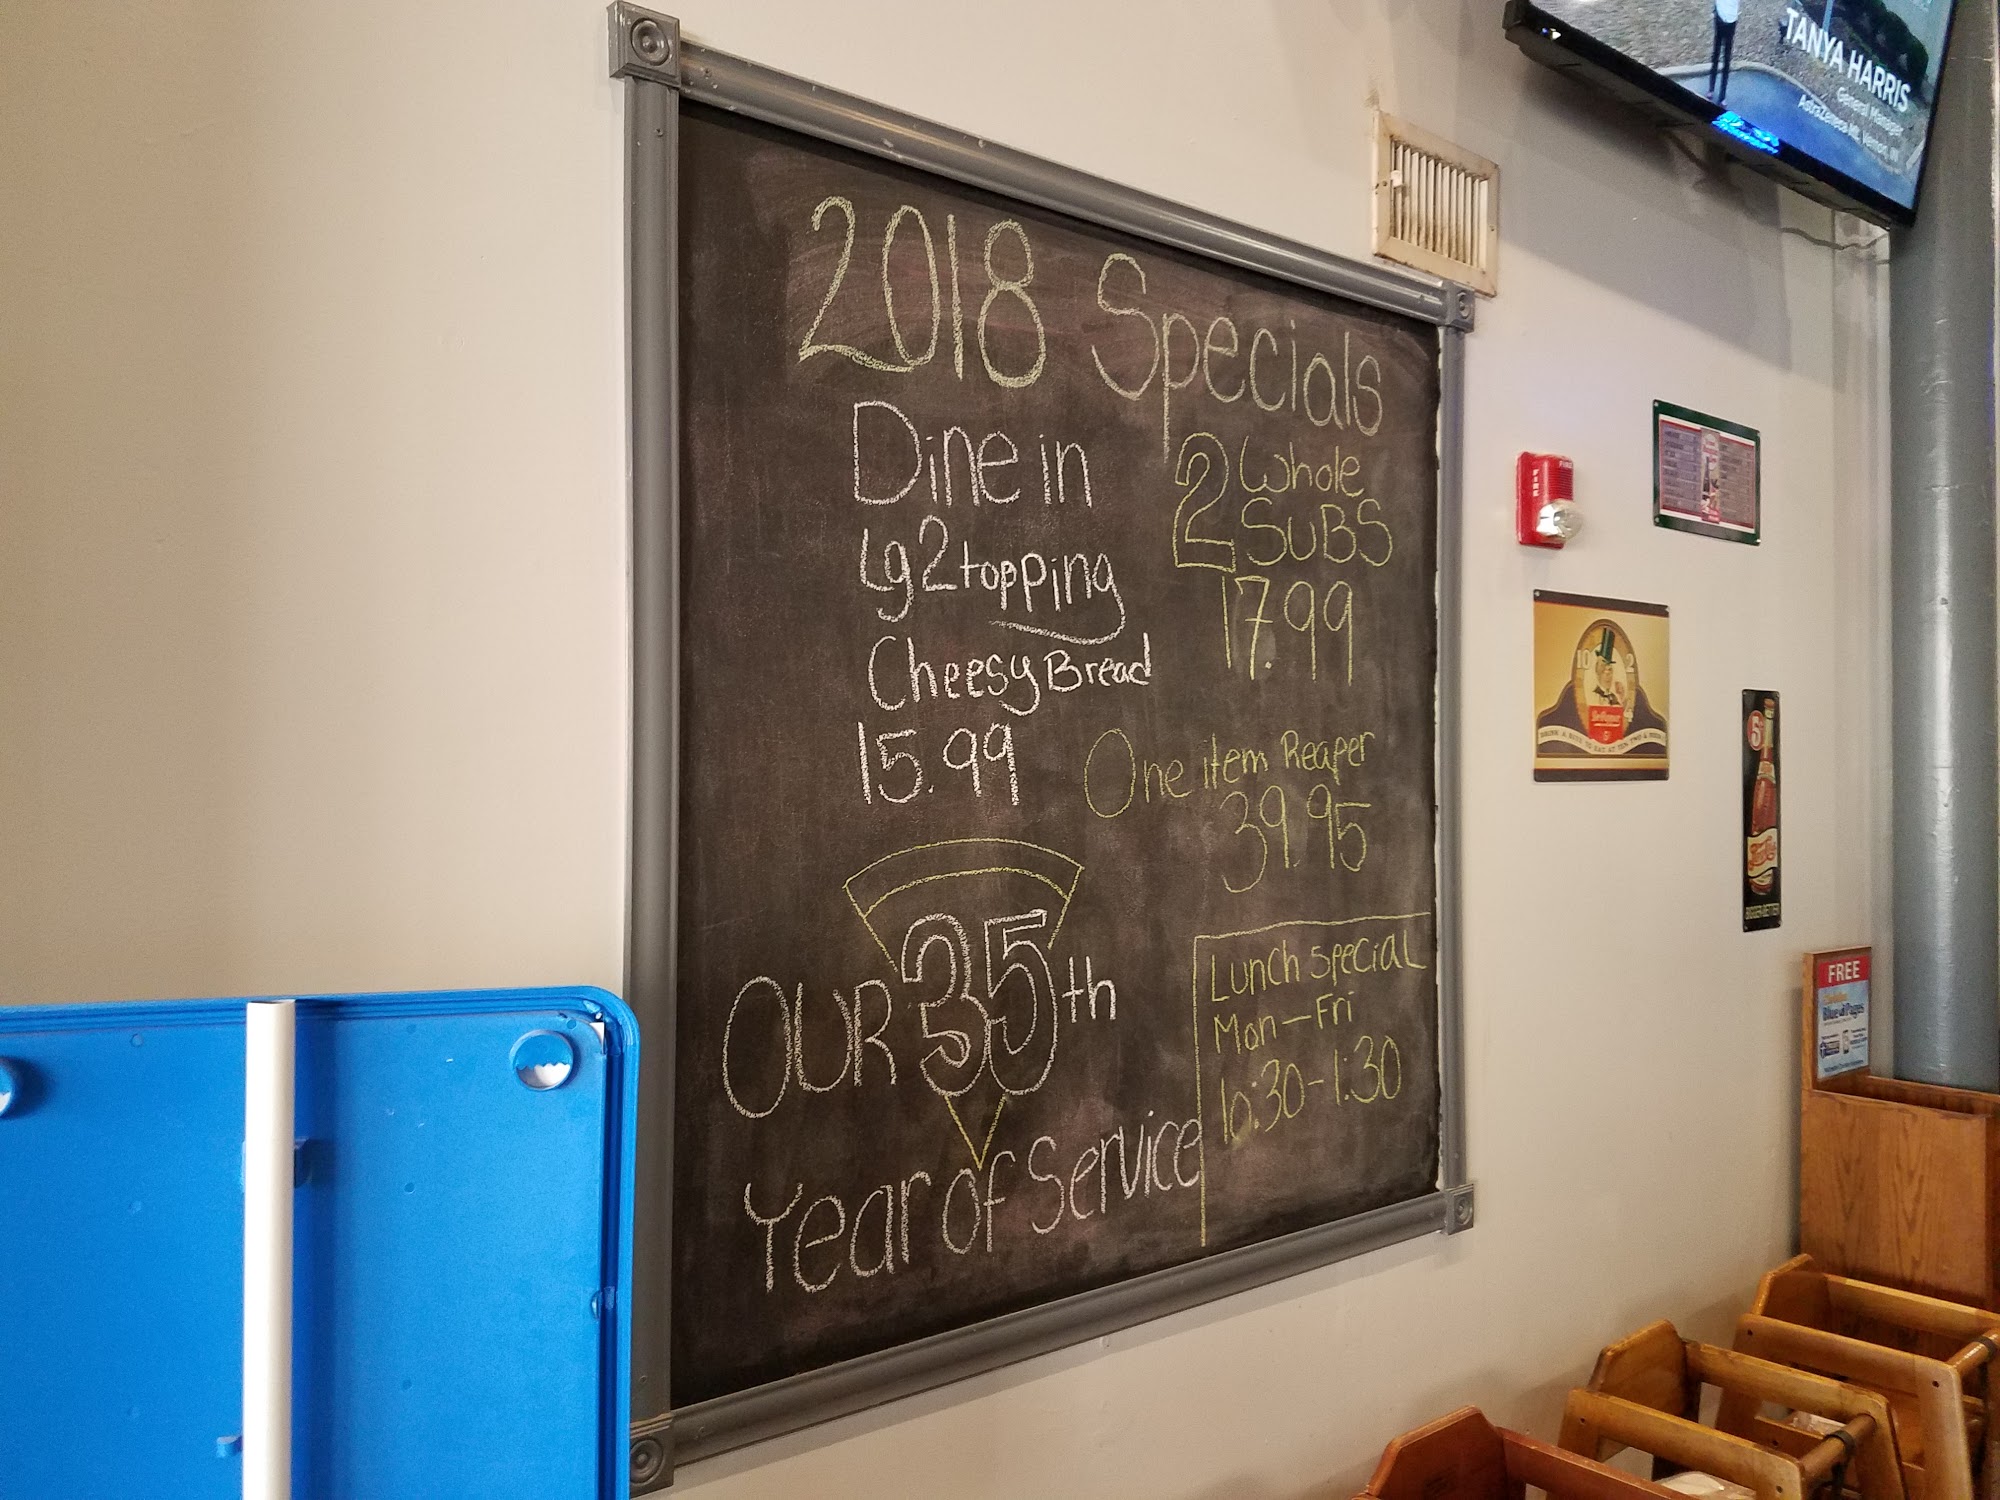 2018 Specials
Dine in
Lg 2 topping
Cheesy Bread
15.99
2 Whole
SUBS
17.99
One item Reaper
39.95
OUR 35th
Year of Service
Lunch special
Mon-Fri
10:30-1:30
TANYA HARRIS
General Manager
AstraZeneca Mt. Vernon, IN
FIRE
FIRE
10 2
5¢
FREE
Blue Pages